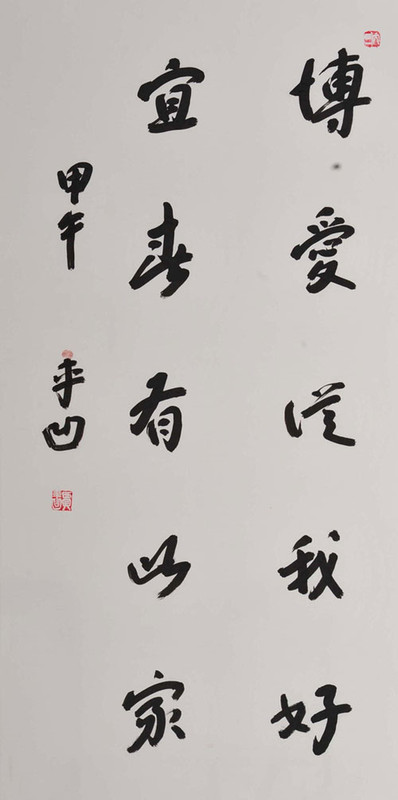 博愛從我好
宜春有此家
甲午 平凹